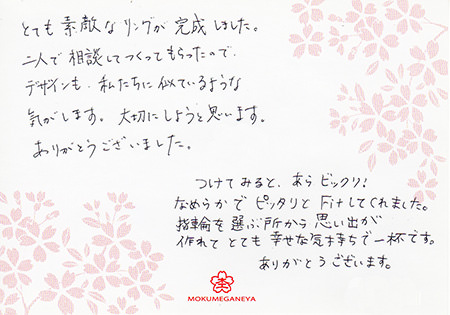 とても素敵なリングが完成しました。
二人で相談してつくってもらったので、
デザインも、私たちに似ているような
気がします。大切にしようと思います。
ありがとうございました。
つけてみると、あらビックリ!
なめらかでピッタリとFitしてくれました。
指輪を選ぶ所から思い出が
作れてとても幸せな気持ちで一杯です。
ありがとうございます。
MOKUMEGANEYA